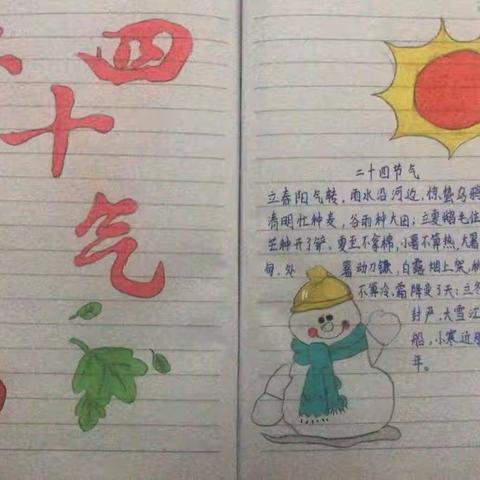 四
十
气
二十四节气
立春阳气转，雨水沿河边，惊蛰乌鸦
清明忙种麦，谷雨种大田；立夏鹅毛住
芒种开了铲，夏至不拿棉，小暑不算热，大暑
旬，处暑动刀镰，白露烟上架，
不算冷，霜降变了天；立冬
封严，大雪江
船，小寒近
年。